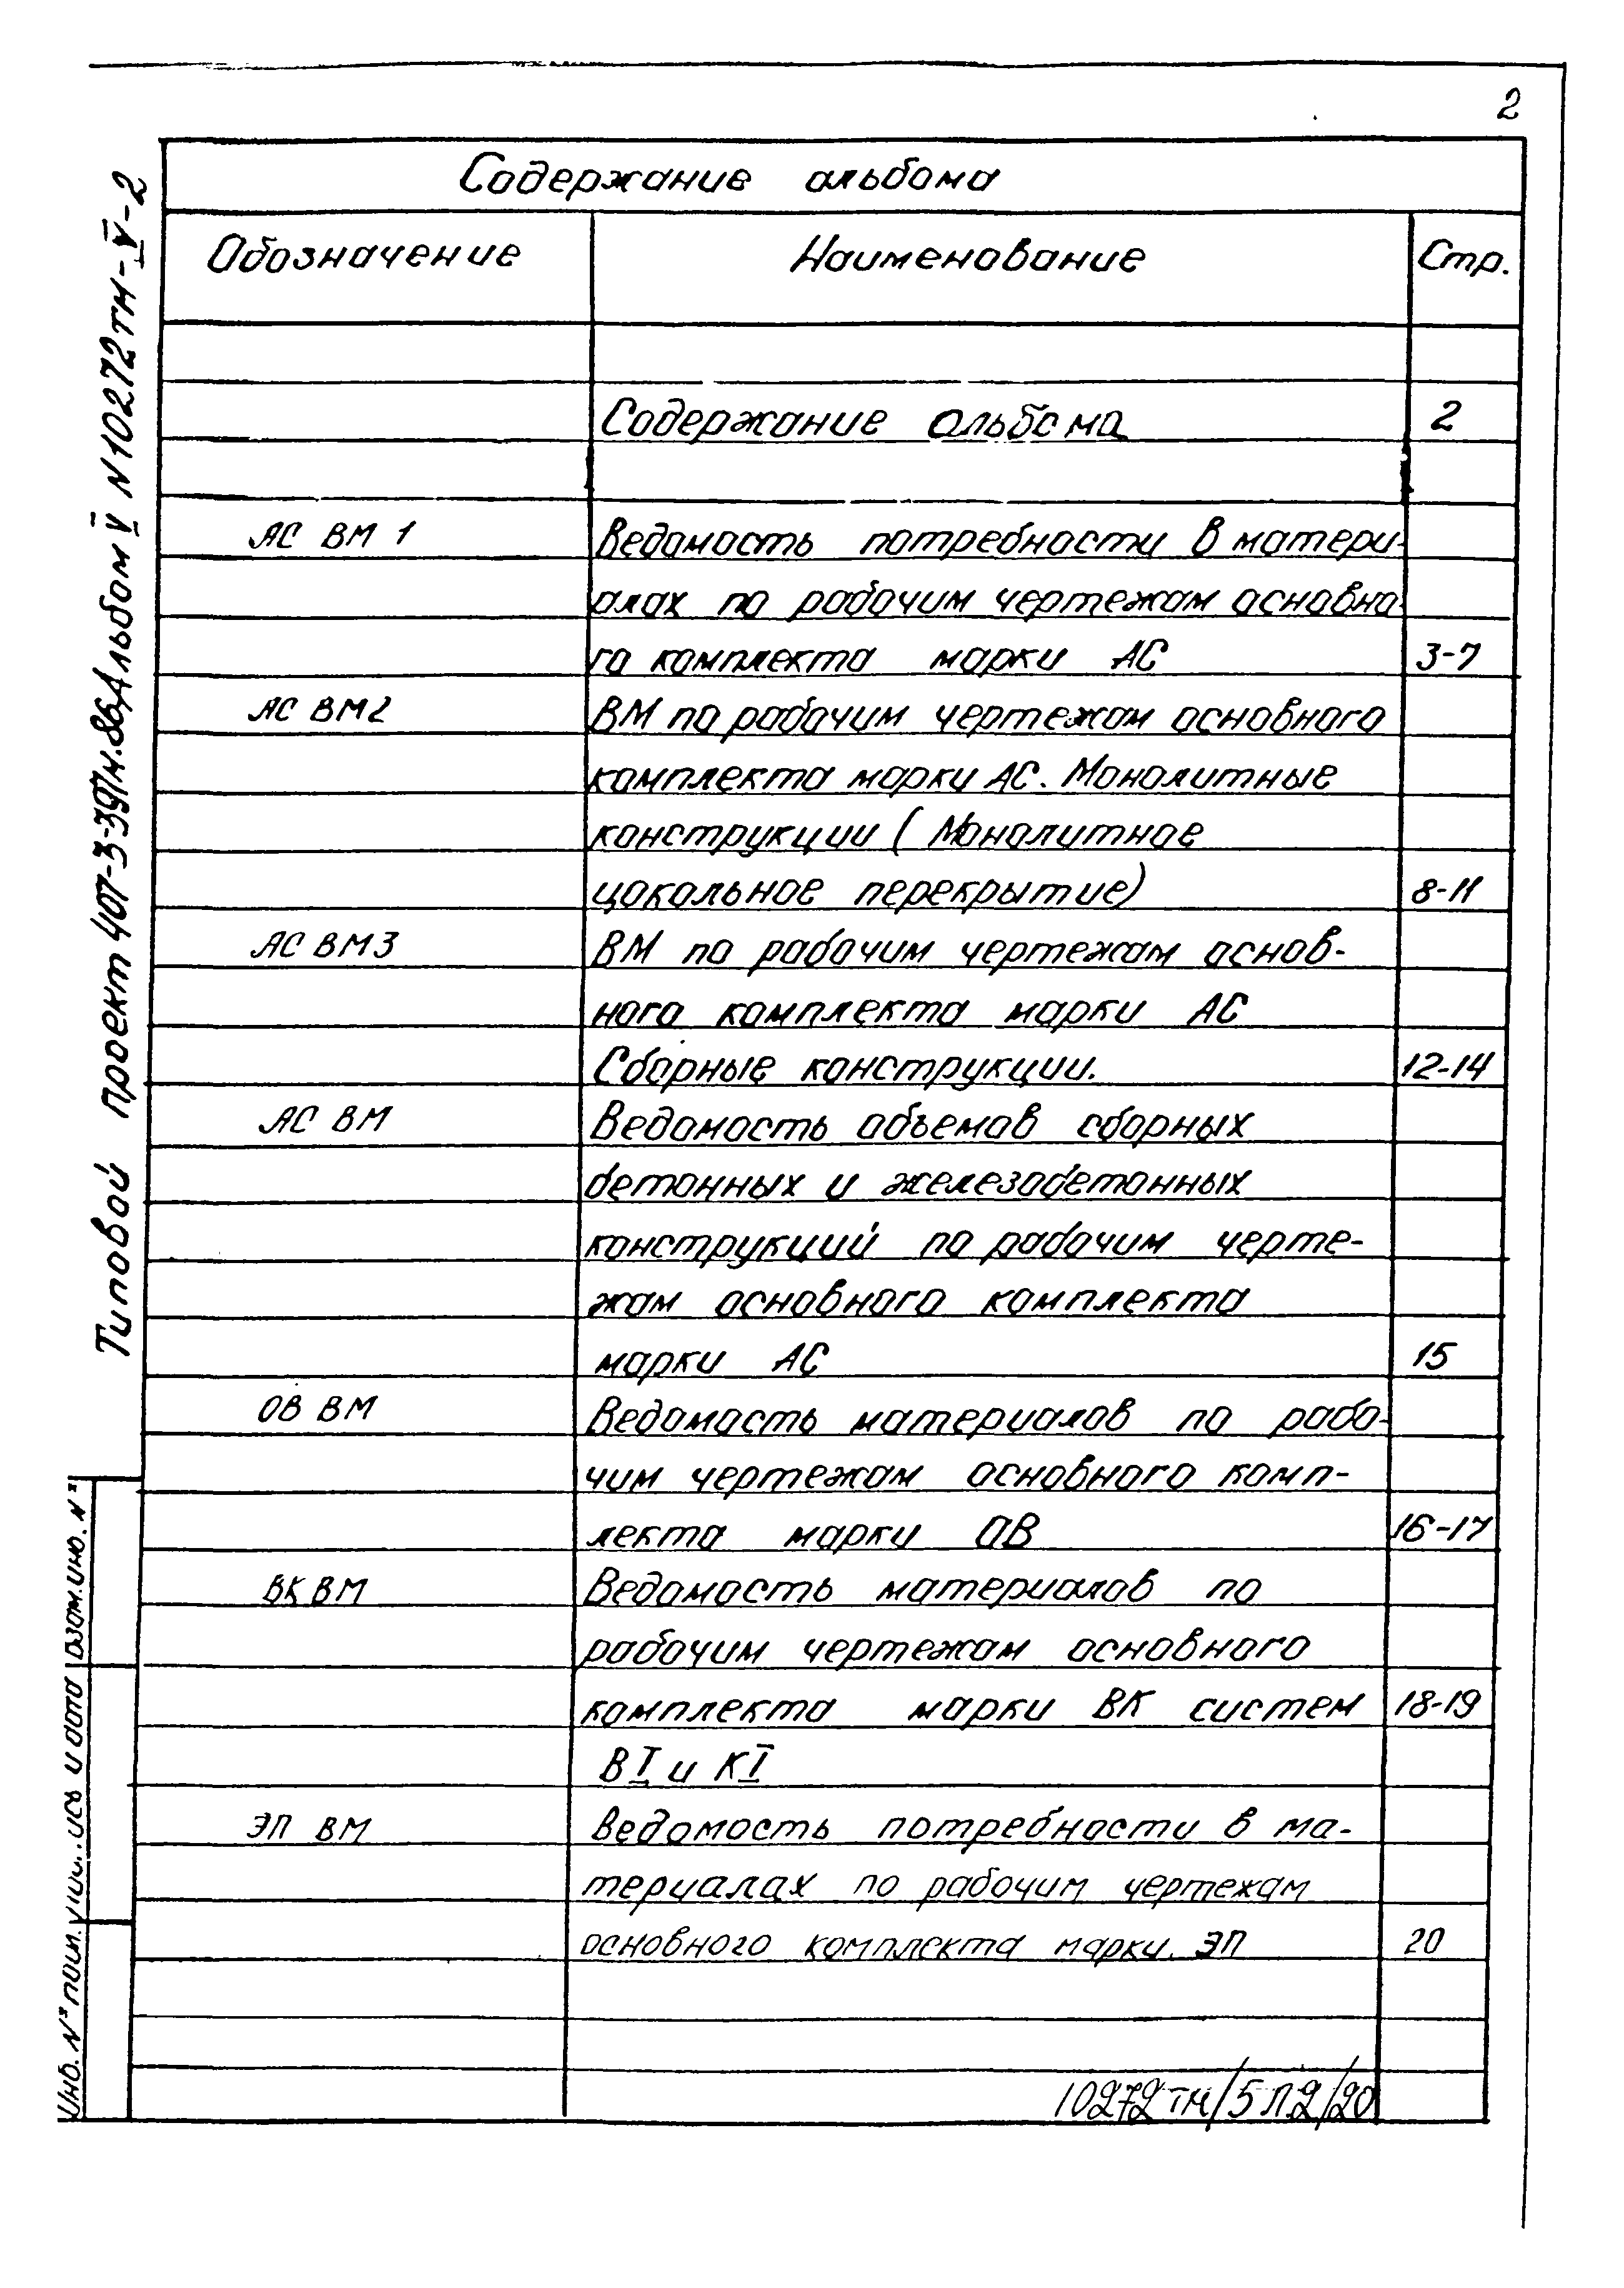 2
Содержание альбома
Обозначение Наименование Стр.
Содержание альбома 2
АС ВМ 1 Ведомость потребности в матери-
алах по рабочим чертежам основно-
го комплекта марки АС 3-7
АС ВМ2 ВМ по рабочим чертежам основного
комплекта марки АС. Монолитные
конструкции (Монолитное
цокольное перекрытие) 8-11
АС ВМ3 ВМ по рабочим чертежам основ-
ного комплекта марки АС
Сборные конструкции. 12-14
АС ВМ Ведомость объемов сборных
бетонных и железобетонных
конструкций по рабочим черте-
жам основного комплекта
марки АС 15
ОВ ВМ Ведомость материалов по рабо-
чим чертежам основного комп-
лекта марки ОВ 16-17
ВК ВМ Ведомость материалов по
рабочим чертежам основного
комплекта марки ВК систем 18-19
В I и К I
ЭП ВМ Ведомость потребности в ма-
териалах по рабочим чертежам
основного комплекта марки ЭП 20
10272 тм/5 л.2/20
Типовой проект 407-3-397м.86 Альбом V N10272тм-V-2
Инв. N° подп. и дата Взам. инв. N°